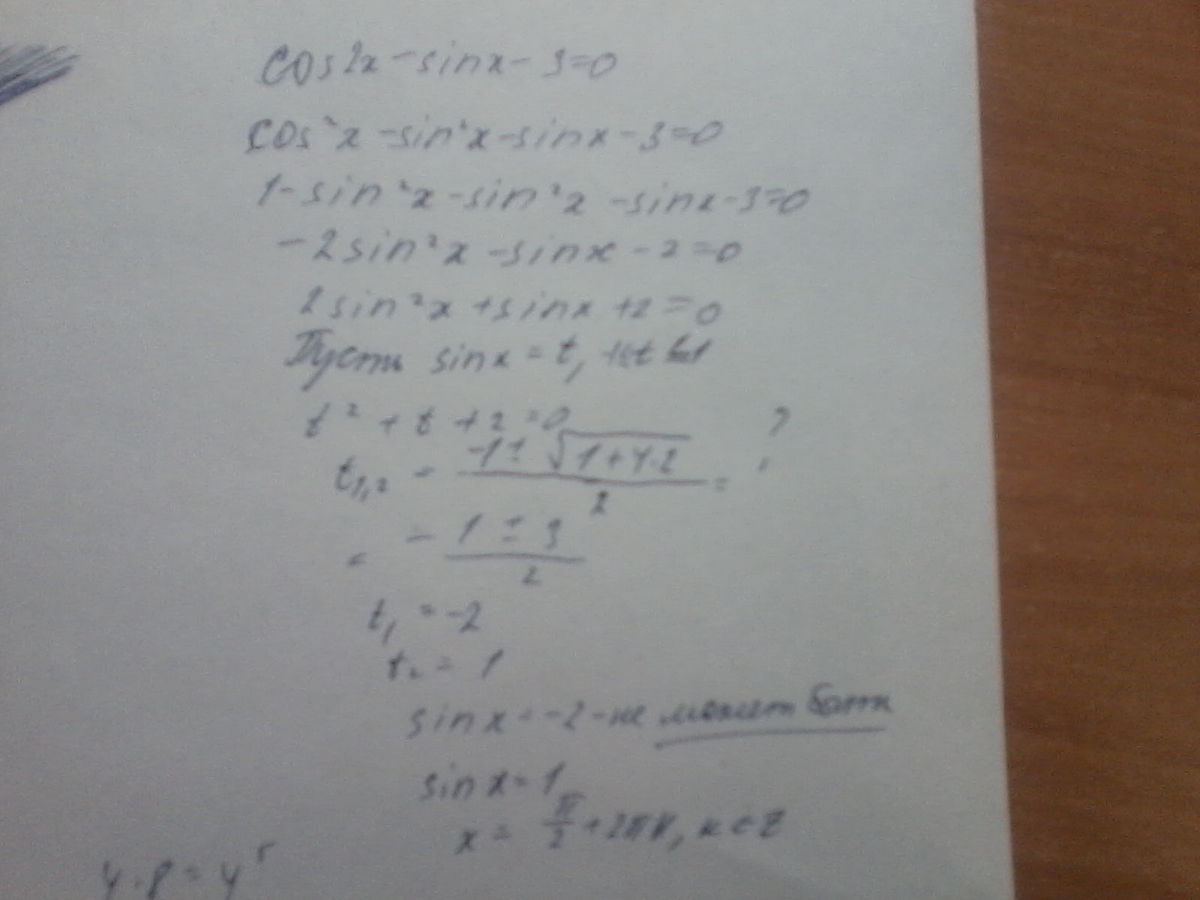 cos2x - sinx - 3=0
cos²x - sin²x - sinx - 3=0
1 - sin²x - sin²x - sinx - 3=0
-2sin²x - sinx - 2=0
2sin²x + sinx + 2=0
Пусть sinx = t,
t² + t + 2 = 0
t₁,₂ = (-1 ± √(1+4·2))/2 = ?
= (-1 ± 3)/2
t₁ = -2
t₂ = 1
sinx = -2 - не может быть
sinx = 1
x = π/2 + 2πk, k ∈ Z